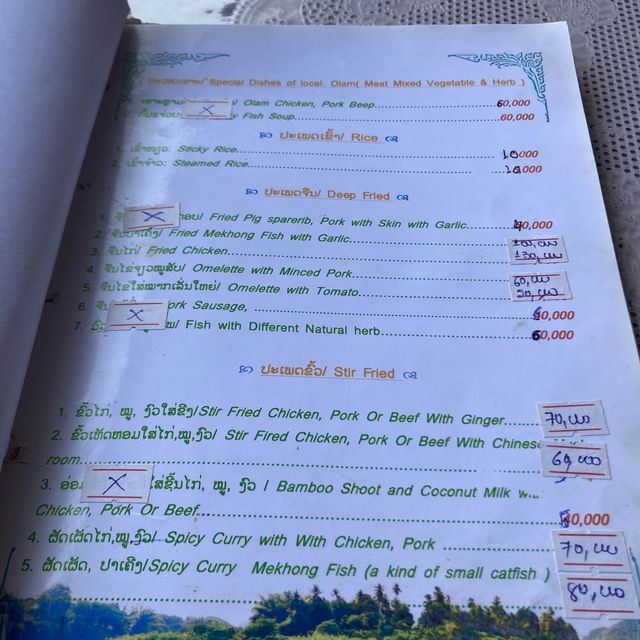 ປະເພດເອາະ/ Special Dishes of local. Olam( Meat Mixed Vegetable & Herb )
1. X / Olam Chicken, Pork Beep 60,000
2. X Fish Soup 60,000
ປະເພດເຂົ້າ/ Rice
1. ເຂົ້າໜຽວ: Sticky Rice 10000
2. ເຂົ້າຈ້າວ: Steamed Rice 000
ປະເພດຈືນ/ Deep Fried
1. X / Fried Pig sparerib, Pork with Skin with Garlic 0,000
2. ຈືນປາເຄິງ/ Fried Mekhong Fish with Garlic 100,000
3. ຈືນໄກ່/ Fried Chicken 130,000
4. ຈືນໄຂ່ຈຽວໝູສັບ/ Omelette with Minced Pork 60,000
5. ຈືນໄຂ່ໃສ່ໝາກເລັ່ນໃຫຍ່/ Omelette with Tomato 50,000
6. X Pork Sausage, 0,000
7. / Fish with Different Natural herb 60,000
ປະເພດຂົ້ວ/ Stir Fried
1. ຂົ້ວໄກ່, ໝູ, ງົວໃສ່ຂີງ/Stir Fried Chicken, Pork Or Beef With Ginger 70,000
2. ຂົ້ວເຫັດຫອມໃສ່ໄກ່,ໝູ,ງົວ/ Stir Fired Chicken, Pork Or Beef With Chinese
room 60,000
3. X ໃສ່ຊີ້ນໄກ່, ໝູ, ງົວ / Bamboo Shoot and Coconut Milk
Chicken, Pork Or Beef 0,000
4. ຜັດເຜັດໄກ່,ໝູ,ງົວ/ Spicy Curry with With Chicken, Pork 70,000
5. ຜັດເຜັດ, ປາເຄິງ/Spicy Curry Mekhong Fish (a kind of small catfish ) 80,000